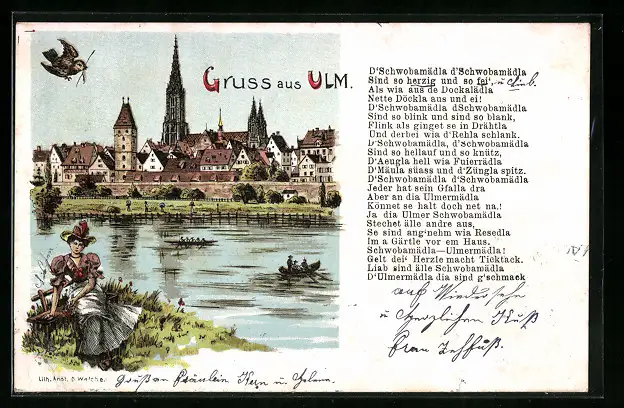 GRUSS AUS ULM.
D'Schwobamädla d'Schwobamädla
Sind so herzig und so fei', u lieb.
Als wia aus de Dockalädla
Nette Döckla aus und ei!
D'Schwobamädla dSchwobamädla
Sind so blink und sind so blank,
Flink als ginget se in Drähtla
Und derbei wia d'Rehla schlank.
D'Schwobamädla, d'Schwobamädla
Sind so hellauf und so knütz,
D'Aeugla hell wia Fuierrädla
D'Mäula süass und d'Züngla spitz.
D'Schwobamädla d'Schwobamädla
Jeder hat sein Gfalla dra
Aber an dia Ulmermädla
Könnet se halt doch net na.!
Ja dia Ulmer Schwobamädla
Stechet älle andre aus,
Se sind ang'nehm wia Resedla
Im a Gärtle vor em Haus.
Schwobamädla—Ulmermädla!
Gelt dei' Herzle macht Ticktack.
Liab sind älle Schwobamädla
D'Ulmermädla dia sind g'schmack
auf Wiedersehn
u Herzlichen Kuß
Frau
Lith. Anst.
Fräulein u.